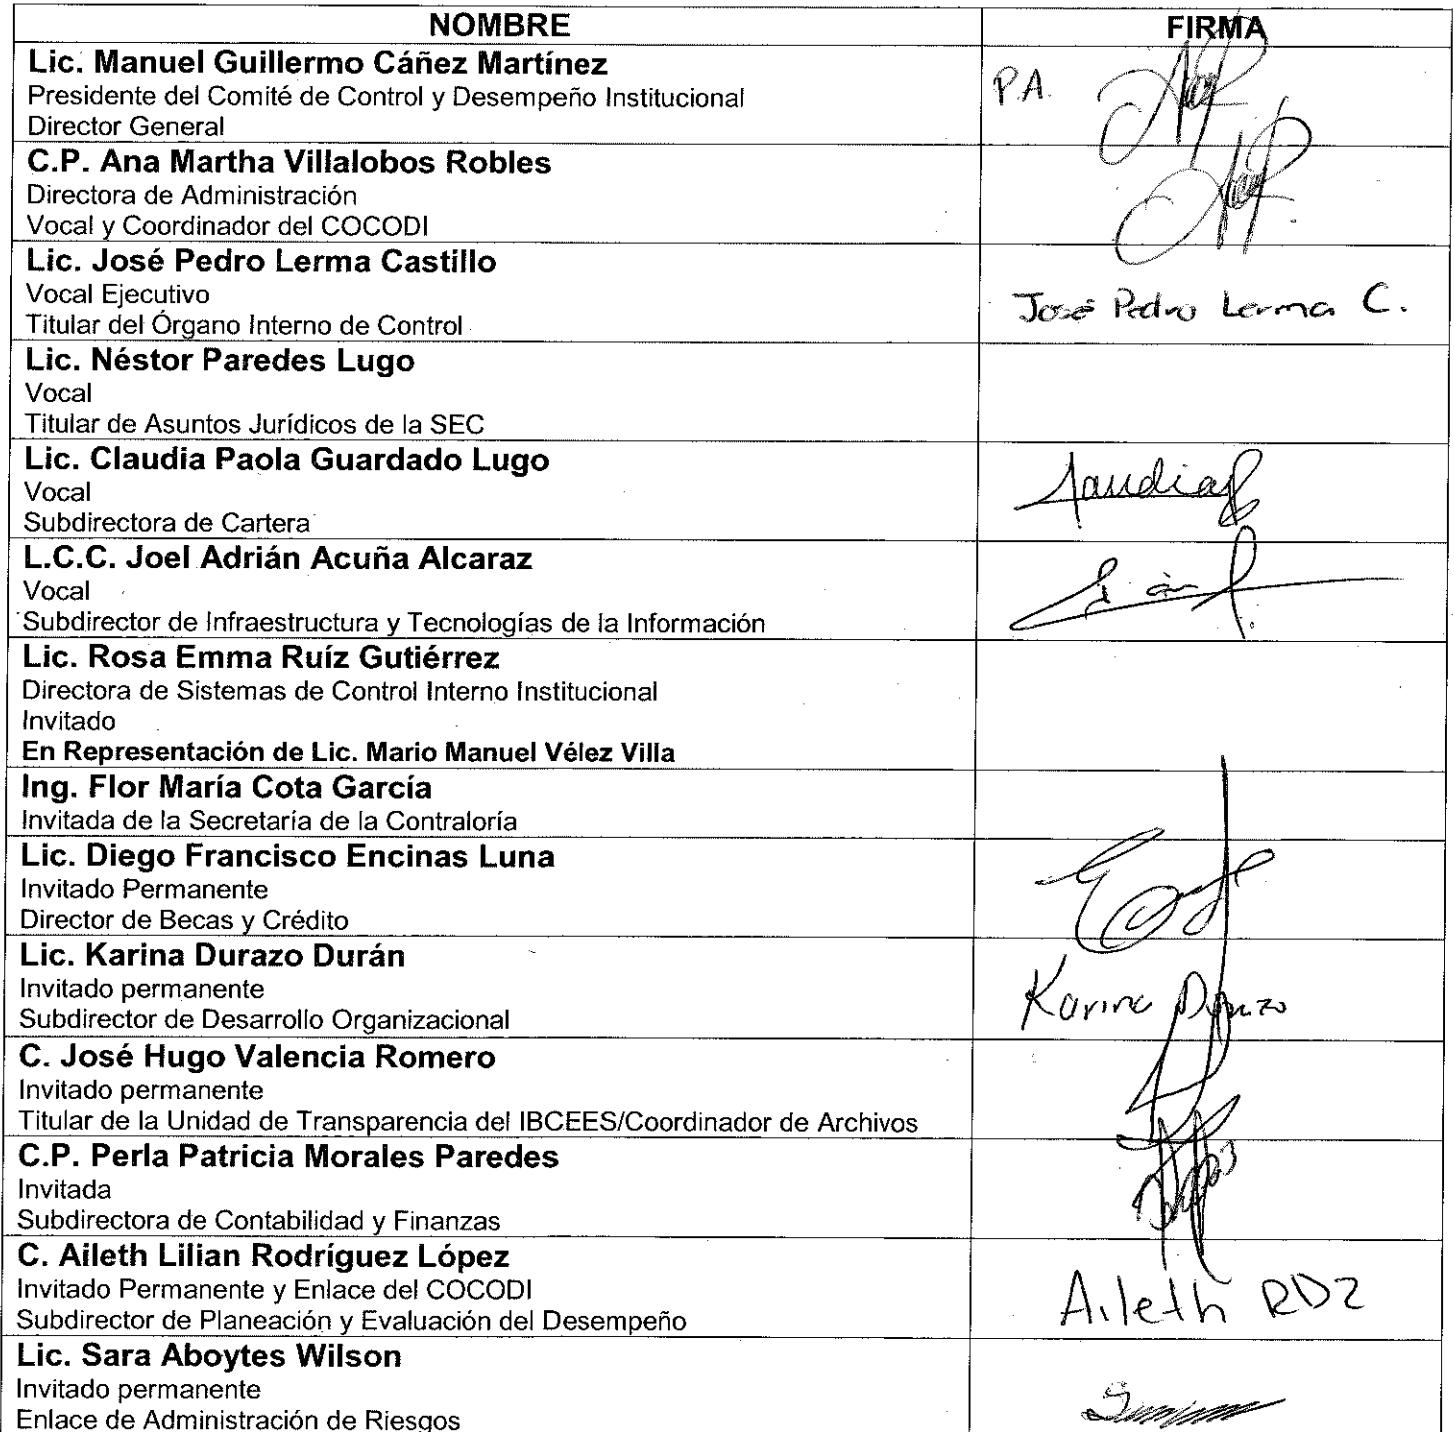 NOMBRE FIRMA
Lic. Manuel Guillermo Cáñez Martínez
Presidente del Comité de Control y Desempeño Institucional P.A.
Director General
C.P. Ana Martha Villalobos Robles
Directora de Administración
Vocal y Coordinador del COCODI
Lic. José Pedro Lerma Castillo
Vocal Ejecutivo José Pedro Lerma C.
Titular del Órgano Interno de Control
Lic. Néstor Paredes Lugo
Vocal
Titular de Asuntos Jurídicos de la SEC
Lic. Claudia Paola Guardado Lugo
Vocal
Subdirectora de Cartera
L.C.C. Joel Adrián Acuña Alcaraz
Vocal
Subdirector de Infraestructura y Tecnologías de la Información
Lic. Rosa Emma Ruíz Gutiérrez
Directora de Sistemas de Control Interno Institucional
Invitado
En Representación de Lic. Mario Manuel Vélez Villa
Ing. Flor María Cota García
Invitada de la Secretaría de la Contraloría
Lic. Diego Francisco Encinas Luna
Invitado Permanente
Director de Becas y Crédito
Lic. Karina Durazo Durán
Invitado permanente Karina Durazo
Subdirector de Desarrollo Organizacional
C. José Hugo Valencia Romero
Invitado permanente
Titular de la Unidad de Transparencia del IBCEES/Coordinador de Archivos
C.P. Perla Patricia Morales Paredes
Invitada
Subdirectora de Contabilidad y Finanzas
C. Aileth Lilian Rodríguez López
Invitado Permanente y Enlace del COCODI Aileth RDZ
Subdirector de Planeación y Evaluación del Desempeño
Lic. Sara Aboytes Wilson
Invitado permanente
Enlace de Administración de Riesgos